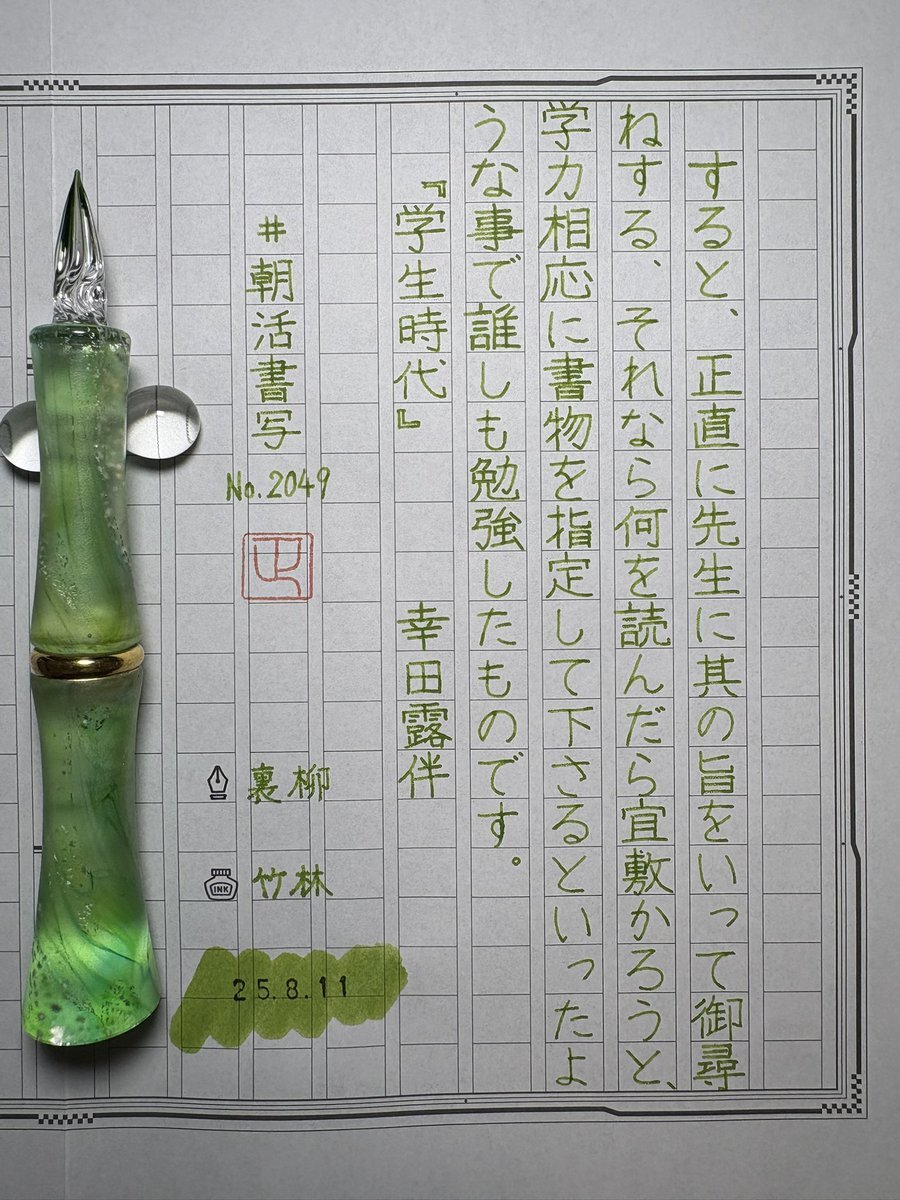 すると、正直に先生に其の旨をいって御尋
ねする、それなら何を読んだら宜敷かろうと、
学力相応に書物を指定して下さるといったよ
うな事で誰しも勉強したものです。
『学生時代』　幸田露伴
#朝活書写
No.2049
裏柳
INK
竹林
25.8.11